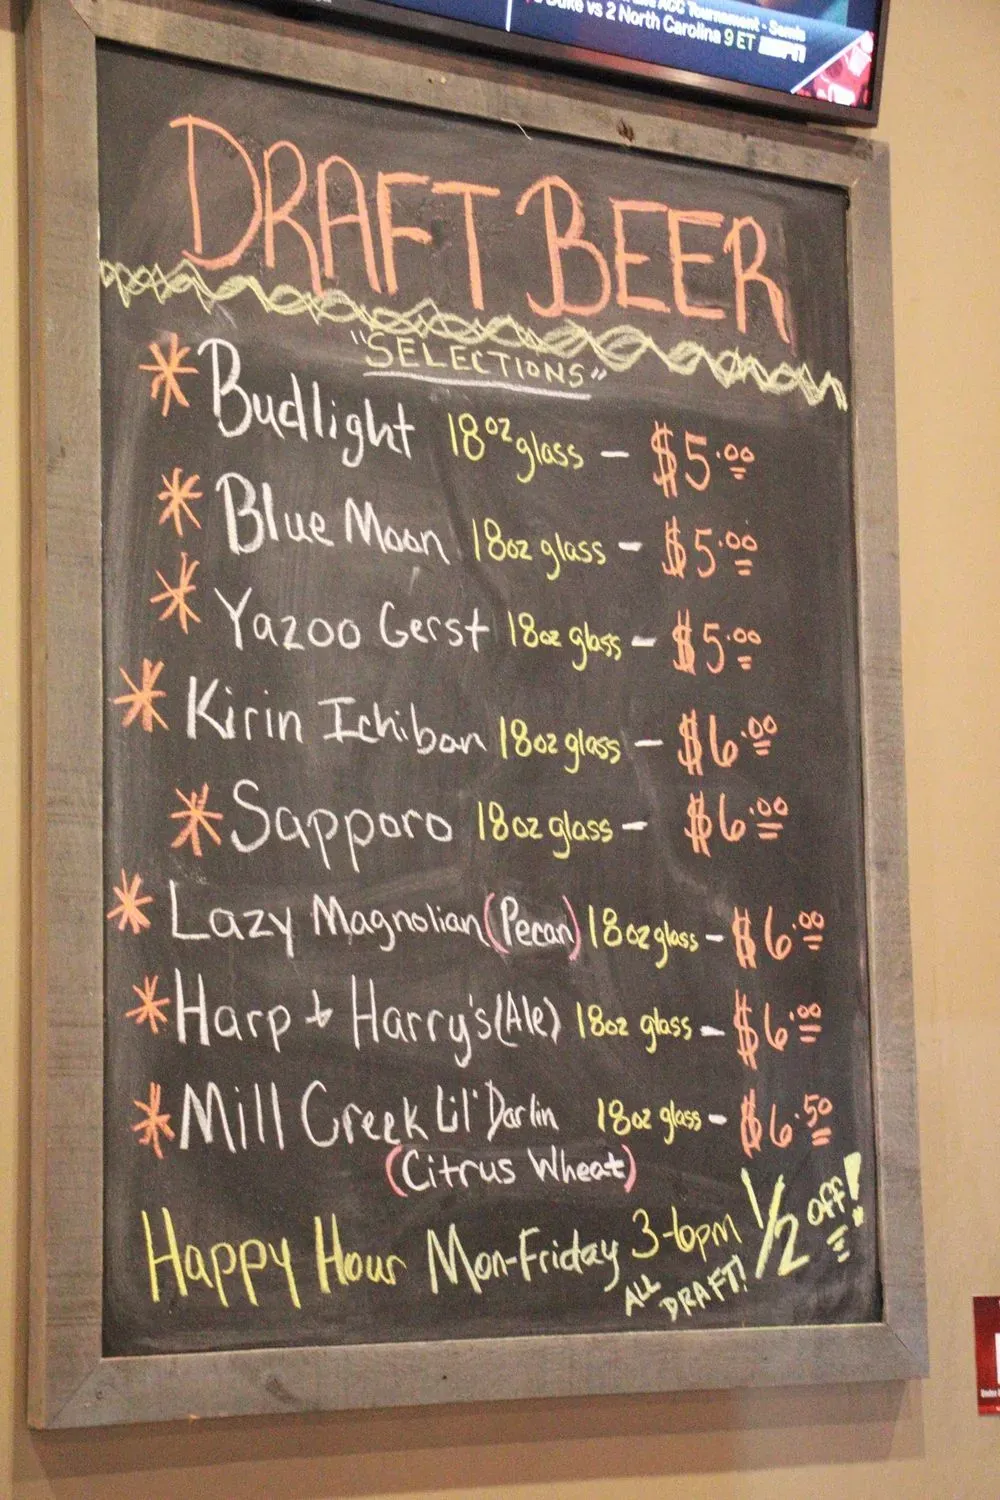 ACC Tournament - Semis
Duke vs 2 North Carolina 9 ET ESPN
DRAFT BEER
"SELECTIONS"
* Budlight 18oz glass - $5.00
* Blue Moon 18oz glass - $5.00
* Yazoo Gerst 18oz glass - $5.00
* Kirin Ichiban 18oz glass - $6.00
* Sapporo 18oz glass - $6.00
* Lazy Magnolian (Pecan) 18oz glass - $6.00
* Harp & Harry's (Ale) 18oz glass - $6.00
* Mill Creek Lil' Darlin 18oz glass - $6.50
(Citrus Wheat)
Happy Hour Mon-Friday 3-6pm 1/2 off!
ALL DRAFT!